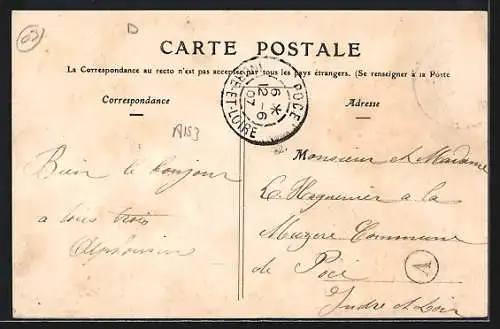 62
D
CARTE POSTALE
La Correspondance au recto n'est pas acceptée par tous les pays étrangers. (Se renseigner à la Poste
Correspondance
Adresse
POCÉ
6 *
12 - 6
07
INDRE-ET-LOIRE
A153
Bien le bonjour
a tous trois
Monsieur et Madame
a la
Commune
de Pocé
Indre et Loir
A